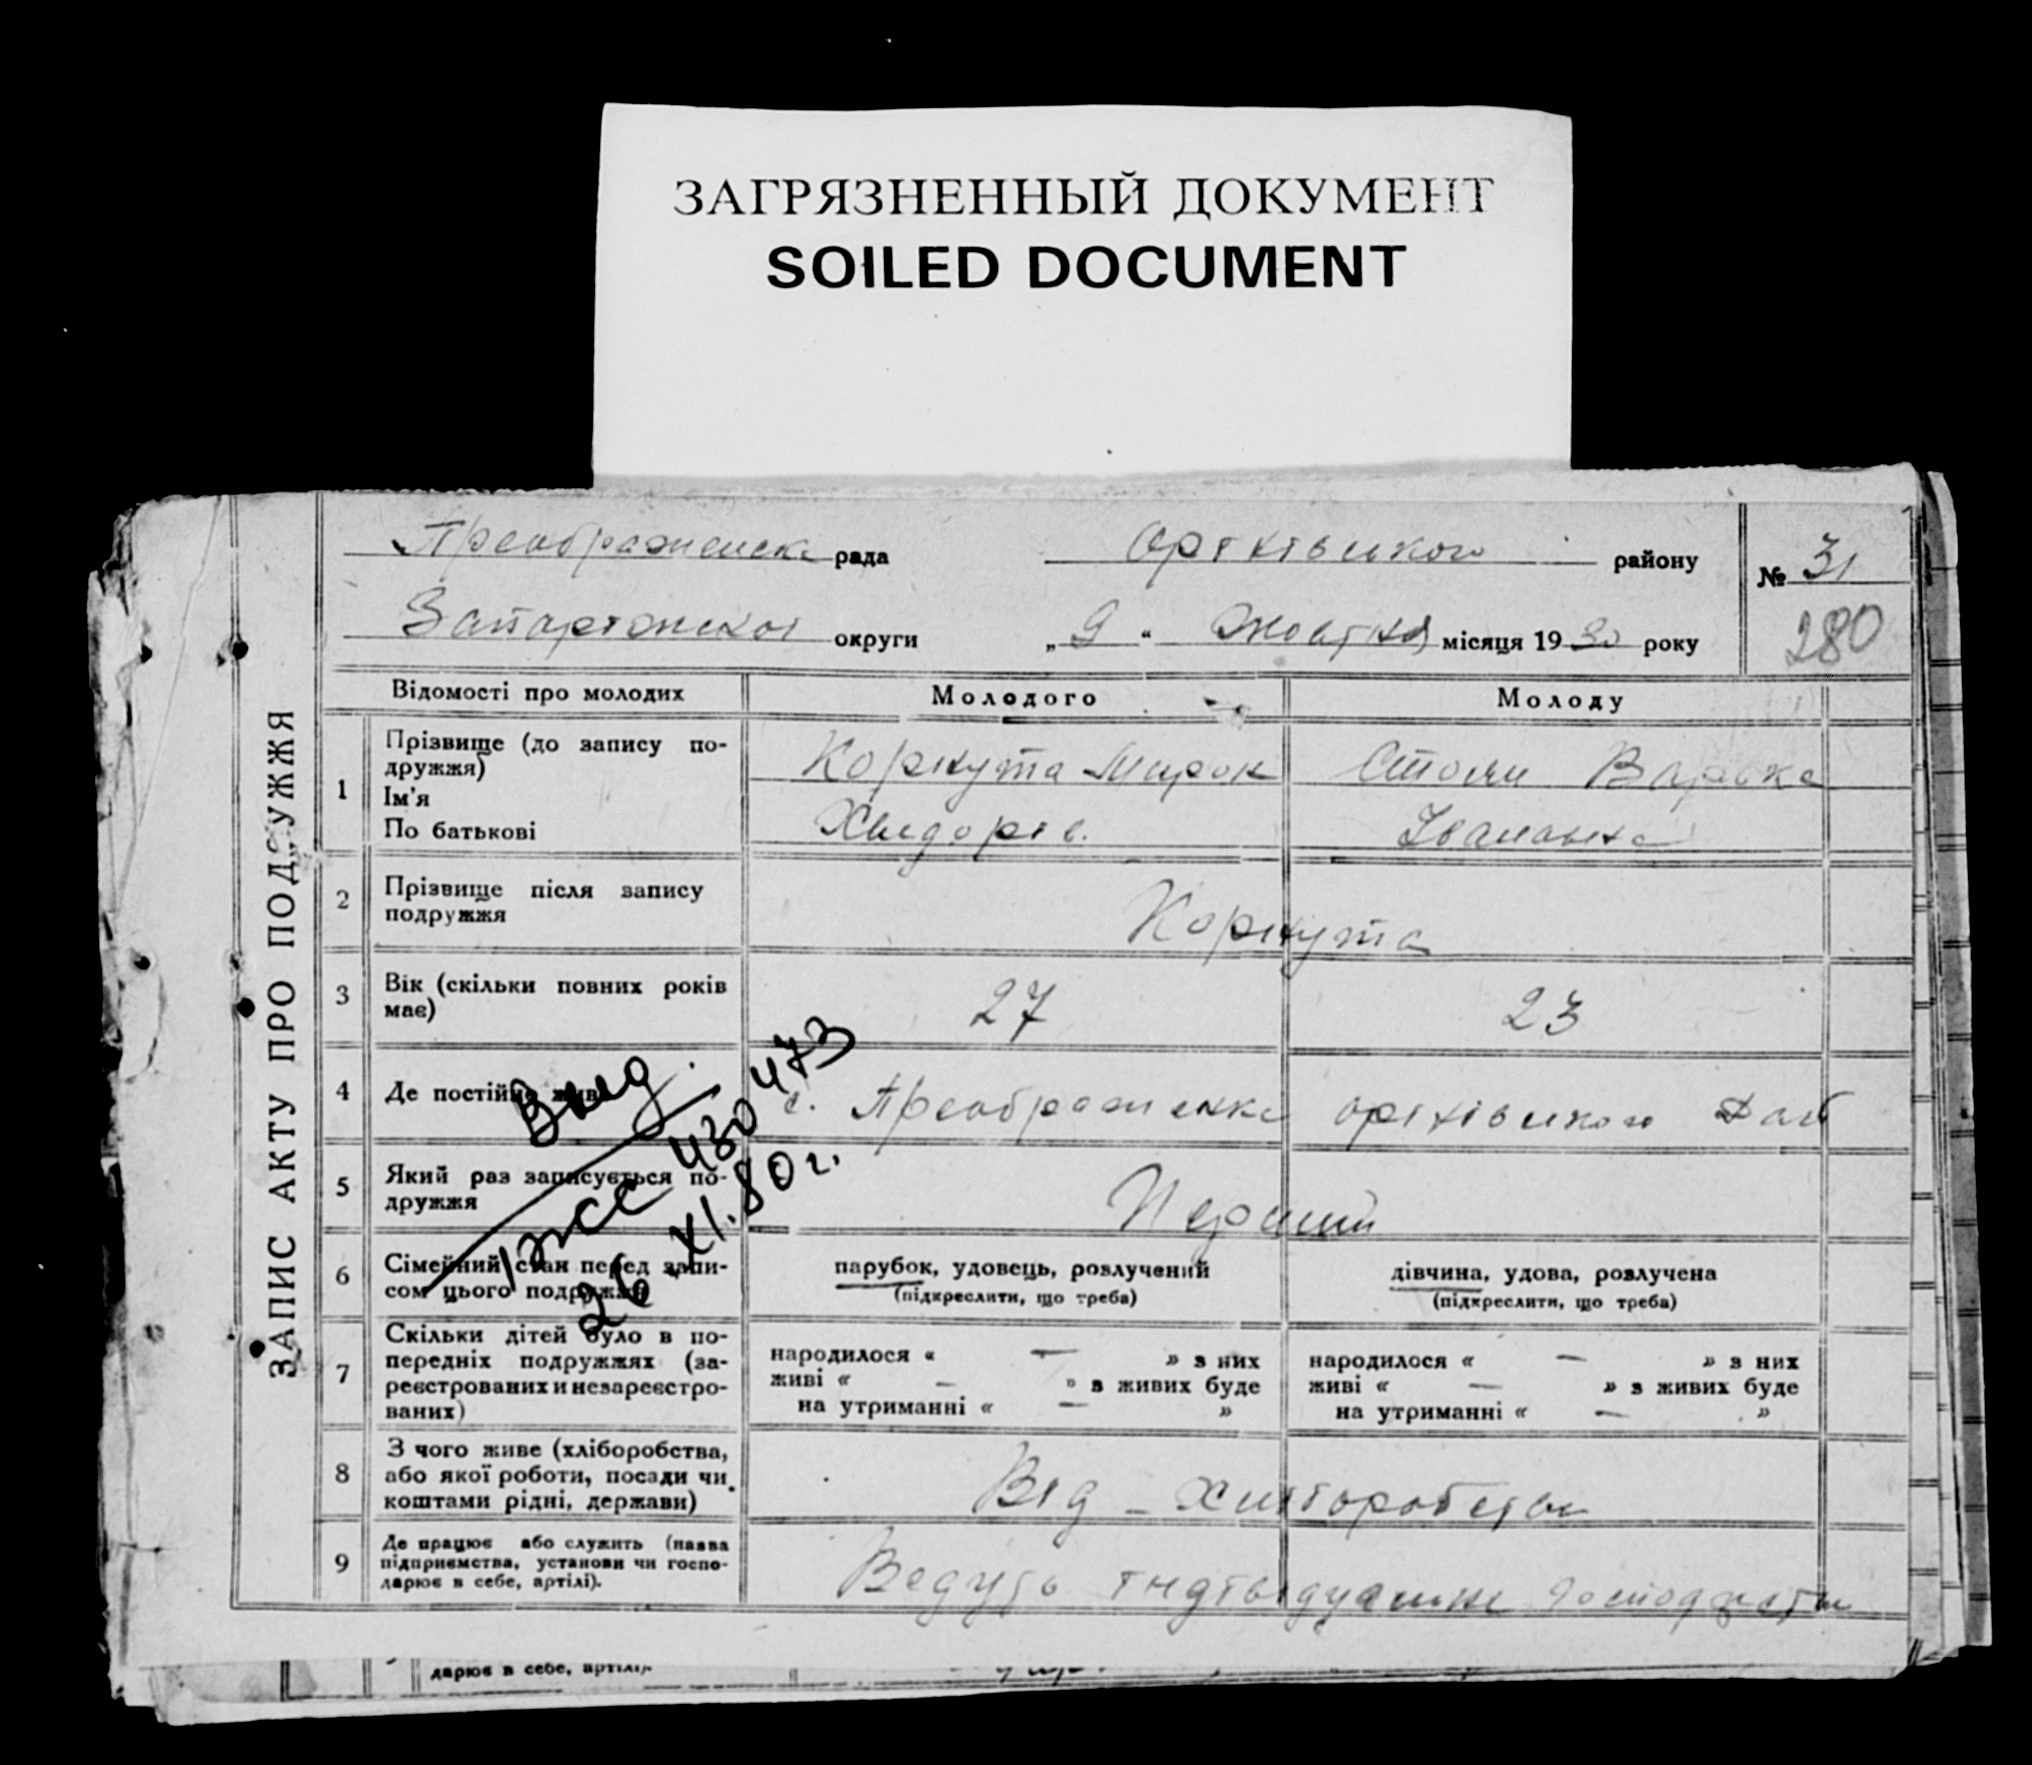 ЗАГРЯЗНЕННЫЙ ДОКУМЕНТ
SOILED DOCUMENT
ЗАПИС АКТУ ПРО ПОДРУЖЖЯ
Преображенска рада Оріхівського району № 31
Запоріжської округи „ 9 “ Жовтня місяця 1930 року 280
Відомості про молодих Молодого Молоду
1 Прізвище (до запису по-
дружжя) Коркута Мирон Варвка
Ім'я
По батькові Хведорів. Івановна
2 Прізвище після запису
подружжя Коркута
3 Вік (скільки повних років
має) 27 23
4 Де постійно живе с. Преображенка оріхівського
5 Який раз записується по-
дружжя Перший
6 Сімейний стан перед запи-
сом цього подружжя
парубок, удовець, розлучений
(підкреслити, що треба)
дівчина, удова, розлучена
(підкреслити, що треба)
7 Скільки дітей було в по-
передніх подружжях (за-
реєстрованих и незареєстро-
ваних)
народилося « — » з них
живі « — » з живих буде
на утриманні « — »
народилося « — » з них
живі « — » з живих буде
на утриманні « — »
8 З чого живе (хліборобства,
або якої роботи, посади чи
коштами рідні, держави) Від - хліборобства
9 Де працює або служить (назва
підприємства, установи чи госпо-
дарює в себе, артілі). Ведуть індівідуальне
Выд.
430 473
26.XI.80 г.
дарює в себе, артілі).